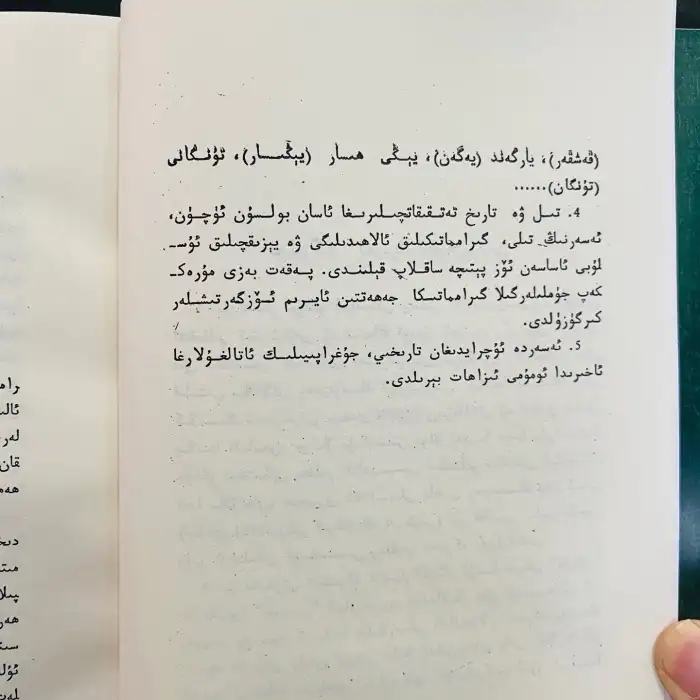 (قەشقەر)، ياركەند (يەكەن)، يېڭى ھىسار (يېڭىسار)، تۇنگانى
(تۇنگان)......
4. تىل ۋە تارىخ تەتقىقاتچىلىرىغا ئاسان بولسۇن ئۈچۈن،
ئەسەرنىڭ تىلى، گىرامماتىكىلىق ئالاھىدىلىگى ۋە يېزىقچىلىق ئۇس-
لۇبى ئاساسەن ئۆز پىتىچە ساقلاپ قېلىندى. پەقەت بەزى مۇرەك-
كەپ جۈملىلەرگىلا گىرامماتىكا جەھەتتىن ئايرىم ئۆزگەرتىشلەر
كىرگۈزۈلدى.
5. ئەسەردە ئۇچرايدىغان تارىخىي، جۇغراپىيىلىك ئاتالغۇلارغا
ئاخىرىدا ئومۇمى ئىزاھات بېرىلدى.